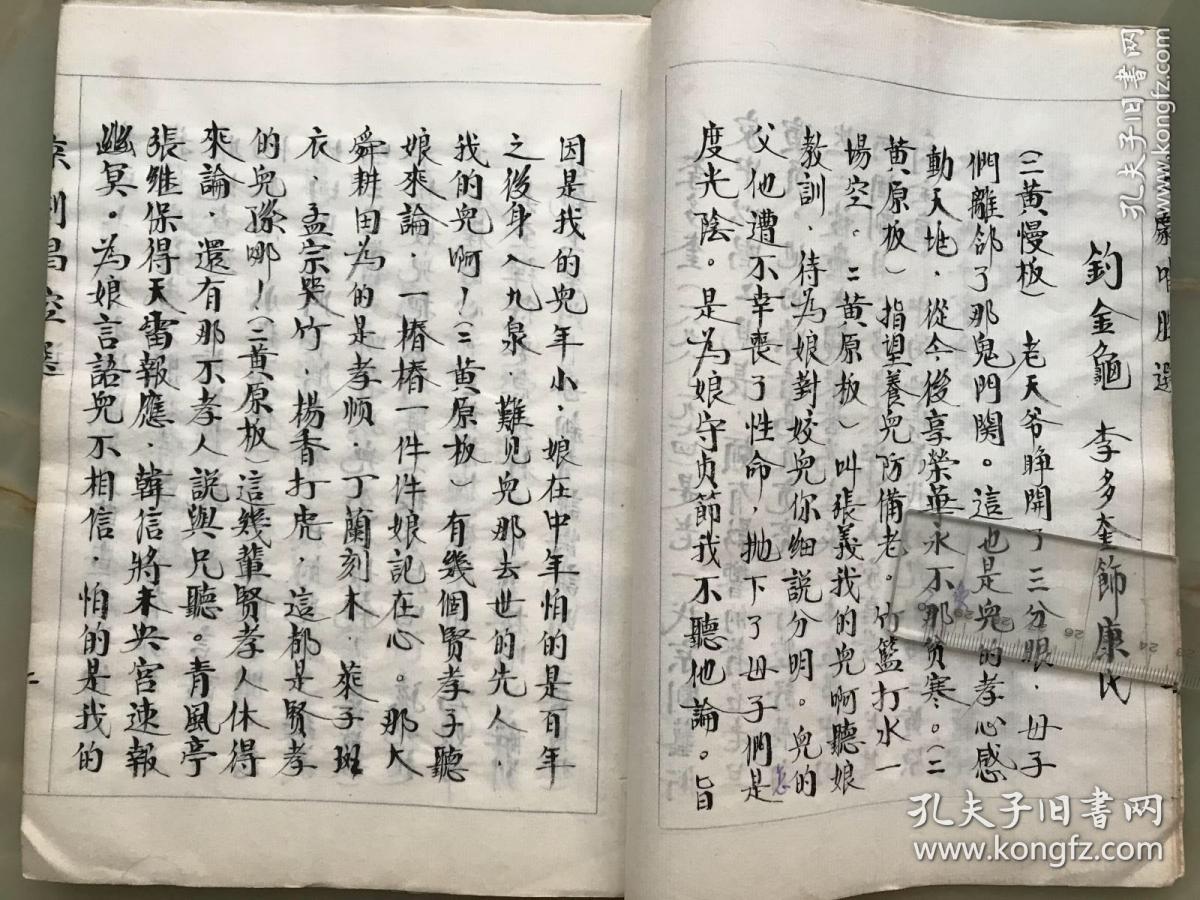 釣金龜 李多奎飾康氏
(二黄慢板) 老天爷睁開了三分眼．母子
們離郤了那鬼門関。這也是兒的孝心感
動天地．從今後享榮華永不那貧寒。(二
黄原板) 指望養兒防備老。竹籃打水一
場空。二黄原板) 叫張義我的兒啊聽娘
教訓．待為娘對姣兒你细說分明。兒的
父他遭不幸喪了性命，抛下了母子們是
怎
度光陰。是为娘守贞節我不聽他論。旨
因是我的兒年小．娘在中年怕的是百年
之後身入九泉．難见兒那去世的先人．
我的兒啊！(二黄原板) 有幾個賢孝子聽
娘來論．一樁樁一件件娘記在心。那大
舜耕田為的是孝顺．丁蘭刻木．萊子斑
衣．孟宗哭竹．楊香打虎．這都是賢孝
的兒孫哪！(二黄原板) 這幾輩賢孝人休得
來論．還有那不孝人説與兒聽。青風亭
張继保得天雷報應．韓信將未央宫速報
幽冥。為娘言語兒不相信．怕的是我的
京劇唱腔選
劇唱腔選
孔夫子旧书网
www.kongfz.com
孔夫子旧书网
www.kongfz.com